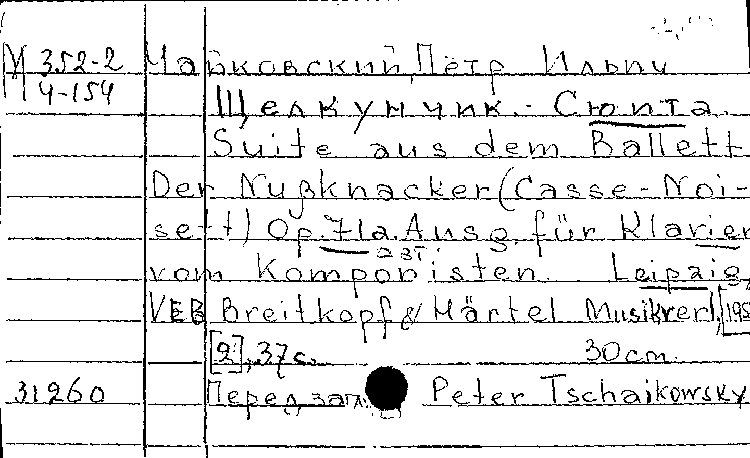 М 352-2 Чайковский, Пётр Ильич
4-154 Щелкунчик. - Сюита.
Suite aus dem Ballett
Der Nußknacker (Casse-Noi-
sett) Op. 71a. Ausg. für Klavier
vom Komponisten. Leipzig,
VEB Breitkopf & Härtel Musikverl, [195
[2], 37 с. 30 cm.
31260 Перед загл. Peter Tschaikowsky